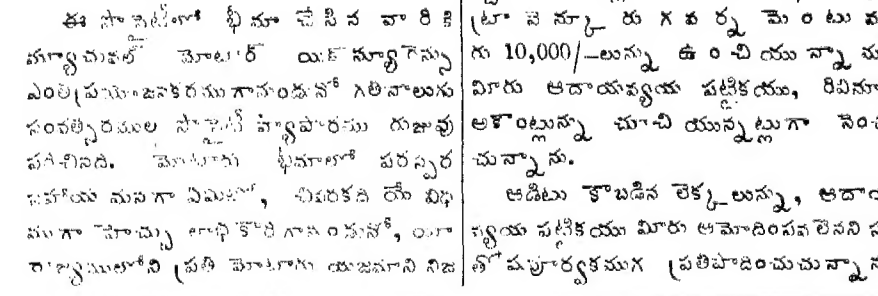 ఈ సొసైటీలో భీమా చేసిన వారికి
మ్యూచుకల్ మోటార్ యిన్ష్యూరెన్సు
ఎంత ప్రయోజనకరముగానుండునో గతినాలుగు
సంవత్సరముల సొసైటీ వ్యాపారము రుజువు
పరచినది. మోటారు భీమాలో పరస్పర
సహాయ మనగా ఏమిటో, చివరకది యే విధ
ముగా హెచ్చు లాభకారి గానుండునో, యీ
రాజ్యములోని ప్రతి మోటారు యజమాని నిజ
ట్రా వెన్కూరు గవర్నమెంటు వ
గు 10,000/–లున్ను ఉంచియున్నాము
మీరు ఆదాయవ్యయ పట్టికయు, రివిన్యూ
అకౌంట్లున్ను చూచి యున్నట్లుగా నెం
చున్నాను.
ఆడిటు కాబడిన లెక్కలున్ను, ఆదా
వ్యయ పట్టికయు మీరు ఆమోదింపవలెనని స
తోషపూర్వకముగ ప్రతిపాదించుచున్నాన